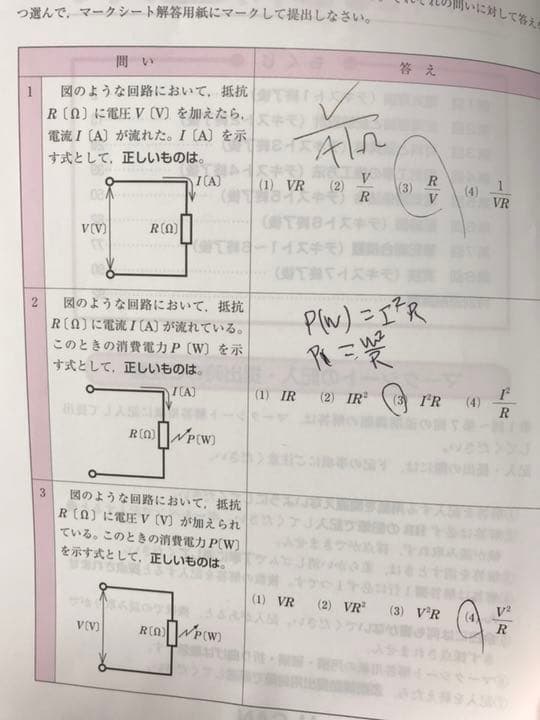 つ選んで，マークシート解答用紙にマークして提出しなさい。
それぞれの問いに対して答え
問い
答え
1
図のような回路において，抵抗
R〔Ω〕に電圧V〔V〕を加えたら，
電流I〔A〕が流れた。I〔A〕を示
す式として，正しいものは。
I〔A〕
V〔V〕
R〔Ω〕
V
A|Ω
(1) VR (2) V/R (3) R/V (4) 1/VR
2
図のような回路において，抵抗
R〔Ω〕に電流I〔A〕が流れている。
このときの消費電力P〔W〕を示
す式として，正しいものは。
I〔A〕
R〔Ω〕
P〔W〕
P(W) = I²R
(1) IR (2) IR² (3) I²R (4) I²/R
3
図のような回路において，抵抗
R〔Ω〕に電圧V〔V〕が加えられ
ている。このときの消費電力P〔W〕
を示す式として，正しいものは。
V〔V〕
R〔Ω〕
P〔W〕
(1) VR (2) VR² (3) V²R (4) V²/R